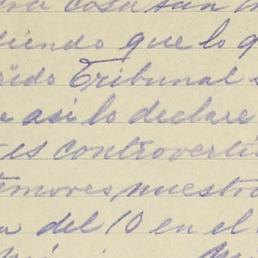 cosa san
diendo que lo q
Tribunal s
e asi lo declare
es controverti
temores nuestro
a del 10 en el